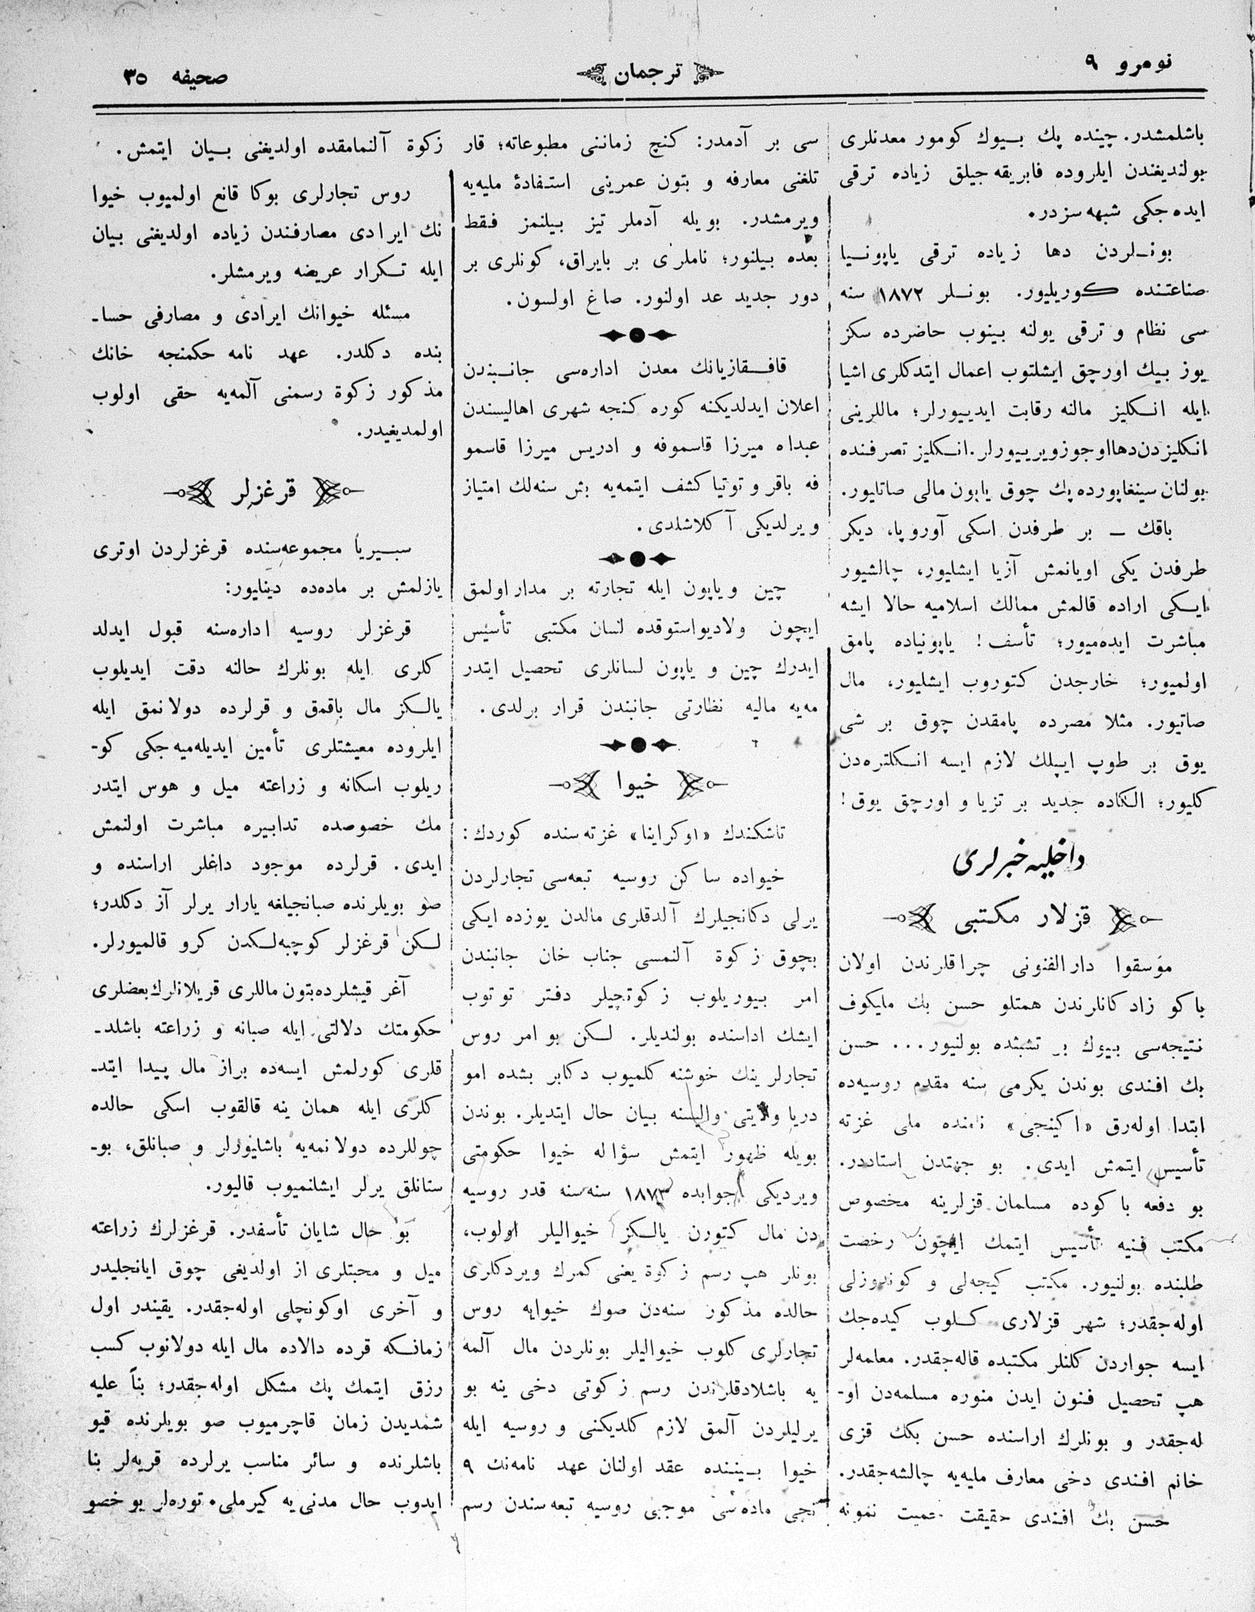 نومرو ۹
ترجمان
صحیفه ۳۵
باشلمشدر. چینده پك بیوك كومور معدنلری
بولندیغندن ایلروده فابریقه جیلق زیاده ترقی
ایده جكی شبهه سزدر.
بونلردن دها زیاده ترقی یاپونیا
صناعتنده كوریلیور. بونلر ۱۸۷۲ سنه
سی نظام و ترقی یولنه بینوب حاضرده سكز
یوز بیك اورچق ایشلتوب اعمال ایتدكلری اشیا
ایله انكلیز مالنه رقابت ایدییورلر؛ ماللرینی
انكلیزدن دها اوجوز ویرییورلر. انكلیز تصرفنده
بولنان سینغاپورده پك چوق یاپون مالی صاتایور.
باقك — بر طرفدن اسكی آوروپا، دیكر
طرفدن یكی اویانمش آزیا ایشلیور، چالشیور
ایكی اراده قالمش ممالك اسلامیه حالا ایشه
مباشرت ایده‌میور؛ تأسف! یاپونیاده پامق
اولمیور؛ خارجدن كتوروب ایشلیور، مال
صاتیور. مثلا مصرده پامقدن چوق بر شی
یوق بر طوپ ایپلك لازم ایسه انكلتره‌دن
كلیور؛ الكاده جدید بر تزیا و اورچق یوق!
داخلیه خبرلری
قزلار مكتبی
موسقوا دار الفنونی چراقلرندن اولان
باكو زادكانلرندن همتلو حسن بك ملیكوف
نتیجه‌سی بیوك بر تشبثده بولنیور... حسن
بك افندی بوندن یكرمی سنه مقدم روسیه‌ده
ابتدا اوله‌رق «اكینجی» نامنده ملی غزته
تأسیس ایتمش ایدی. بو جهتدن استاددر.
بو دفعه باكوده مسلمان قزلرینه مخصوص
مكتب فنیه تأسیس ایتمك ایچون رخصت
طلبنده بولنیور. مكتب كیجه‌لی و كوندوزلی
اوله‌جقدر؛ شهر قزلاری كلوب كیده‌جك
ایسه جواردن كلنلر مكتبده قاله‌جقدر. معلمه‌لر
هپ تحصیل فنون ایدن منوره مسلمه‌دن او-
له‌جقدر و بونلرك اراسنده حسن بكك قزی
خانم افندی دخی معارف ملیه‌یه چالشه‌جقدر.
حسن بك افندی حقیقت حمیت نمونه
سی بر آدمدر: كنج زماننی مطبوعاته؛ قار
تلغنی معارفه و بتون عمرینی استفادۀ ملیه‌یه
ویرمشدر. بویله آدملر تیز بیلنمز فقط
بعده بیلنور؛ ناملری بر بایراق، كونلری بر
دور جدید عد اولنور. صاغ اولسون.
قافقازیانك معدن اداره‌سی جانبندن
اعلان ایدلدیكنه كوره كنجه شهری اهالیسندن
عبداه میرزا قاسموفه و ادریس میرزا قاسمو
فه باقر و توتیا كشف ایتمه‌یه بش سنه‌لك امتیاز
ویرلدیكی آكلاشلدی.
چین و یاپون ایله تجارته بر مدار اولمق
ایچون ولادیواستوقده لسان مكتبی تأسیس
ایدرك چین و یاپون لسانلری تحصیل ایتدر
مه‌یه مالیه نظارتی جانبندن قرار برلدی.
خیوا
تاشكندك «اوكراینا» غزته‌سنده كوردك:
خیواده ساكن روسیه تبعه‌سی تجارلردن
یرلی دكانجیلرك آلدقلری مالدن یوزده ایكی
بچوق زكوة آلنمسی جناب خان جانبندن
امر بیوریلوب زكوتجیلر دفتر توتوب
ایشك اداسنده بولندیلر. لكن بو امر روس
تجارلرینك خوشنه كلمیوب دكابر بشده امو
دریا ولایتی والیسنه بیان حال ایتدیلر. بوندن
بویله ظهور ایتمش سؤاله خیوا حكومتی
ویردیكی جوابده ۱۸۷۳ سنه‌سنه قدر روسیه
دن مال كتورن یالكز خیوالیلر اولوب،
بونلر هپ رسم زكوة یعنی كمرك ویردكلری
حالده مذكور سنه‌دن صوك خیوایه روس
تجارلری كلوب خیوالیلر بونلردن مال آلمه
یه باشلادقلرندن رسم زكوتی دخی ینه بو
یرلیلردن آلمق لازم كلدیكنی و روسیه ایله
خیوا بیننده عقد اولنان عهد نامه‌نك ۹
نجی ماده‌سی موجبی روسیه تبعه‌سندن رسم
زكوة آلنمامقده اولدیغنی بیان ایتمش.
روس تجارلری بوكا قانع اولمیوب خیوا
نك ایرادی مصارفندن زیاده اولدیغنی بیان
ایله تكرار عریضه ویرمشلر.
مسئله خیوانك ایرادی و مصارفی حسا-
بنده دكلدر. عهد نامه حكمنجه خانك
مذكور زكوة رسمنی آلمه‌یه حقی اولوب
اولمدیغیدر.
قرغزلر
سبیریا مجموعه‌سنده قرغزلردن اوتری
یازلمش بر ماده‌ده دینلیور:
قرغزلر روسیه اداره‌سنه قبول ایدلد
كلری ایله بونلرك حالنه دقت ایدیلوب
یالكز مال باقمق و قرلرده دولانمق ایله
ایلروده معیشتلری تأمین ایدیله‌میه‌جكی كو-
ریلوب اسكانه و زراعته میل و هوس ایتدر
مك خصوصده تدابیره مباشرت اولنمش
ایدی. قرلرده موجود داغلر اراسنده و
صو بویلرنده صبانجیلغه یارار یرلر آز دكلدر؛
لكن قرغزلر كوچبه‌لكدن كرو قالمیورلر.
آغر قیشلرده بتون ماللری قریلانلرك بعضلری
حكومتك دلالتی ایله صبانه و زراعته باشلد-
قلری كورلمش ایسه‌ده براز مال پیدا ایتد-
كلری ایله همان ینه قالقوب اسكی حالده
چوللرده دولانمه‌یه باشلیورلر و صبانلق، بو-
ستانلق یرلر ایشلنمیوب قالیور.
بو حال شایان تأسفدر. قرغزلرك زراعته
میل و محبتلری از اولدیغی چوق ایانجلیدر
و آخری اوكونچلی اوله‌جقدر. یقیندر اول
زمانكه قرده دالاده مال ایله دولانوب كسب
رزق ایتمك پك مشكل اوله‌جقدر؛ بنأ علیه
شمدیدن زمان قاچرمیوب صو بویلرنده قیو
باشلرنده و سائر مناسب یرلرده قریه‌لر بنا
ایدوب حال مدنی‌یه كیرملی. توره‌لر بو خصو